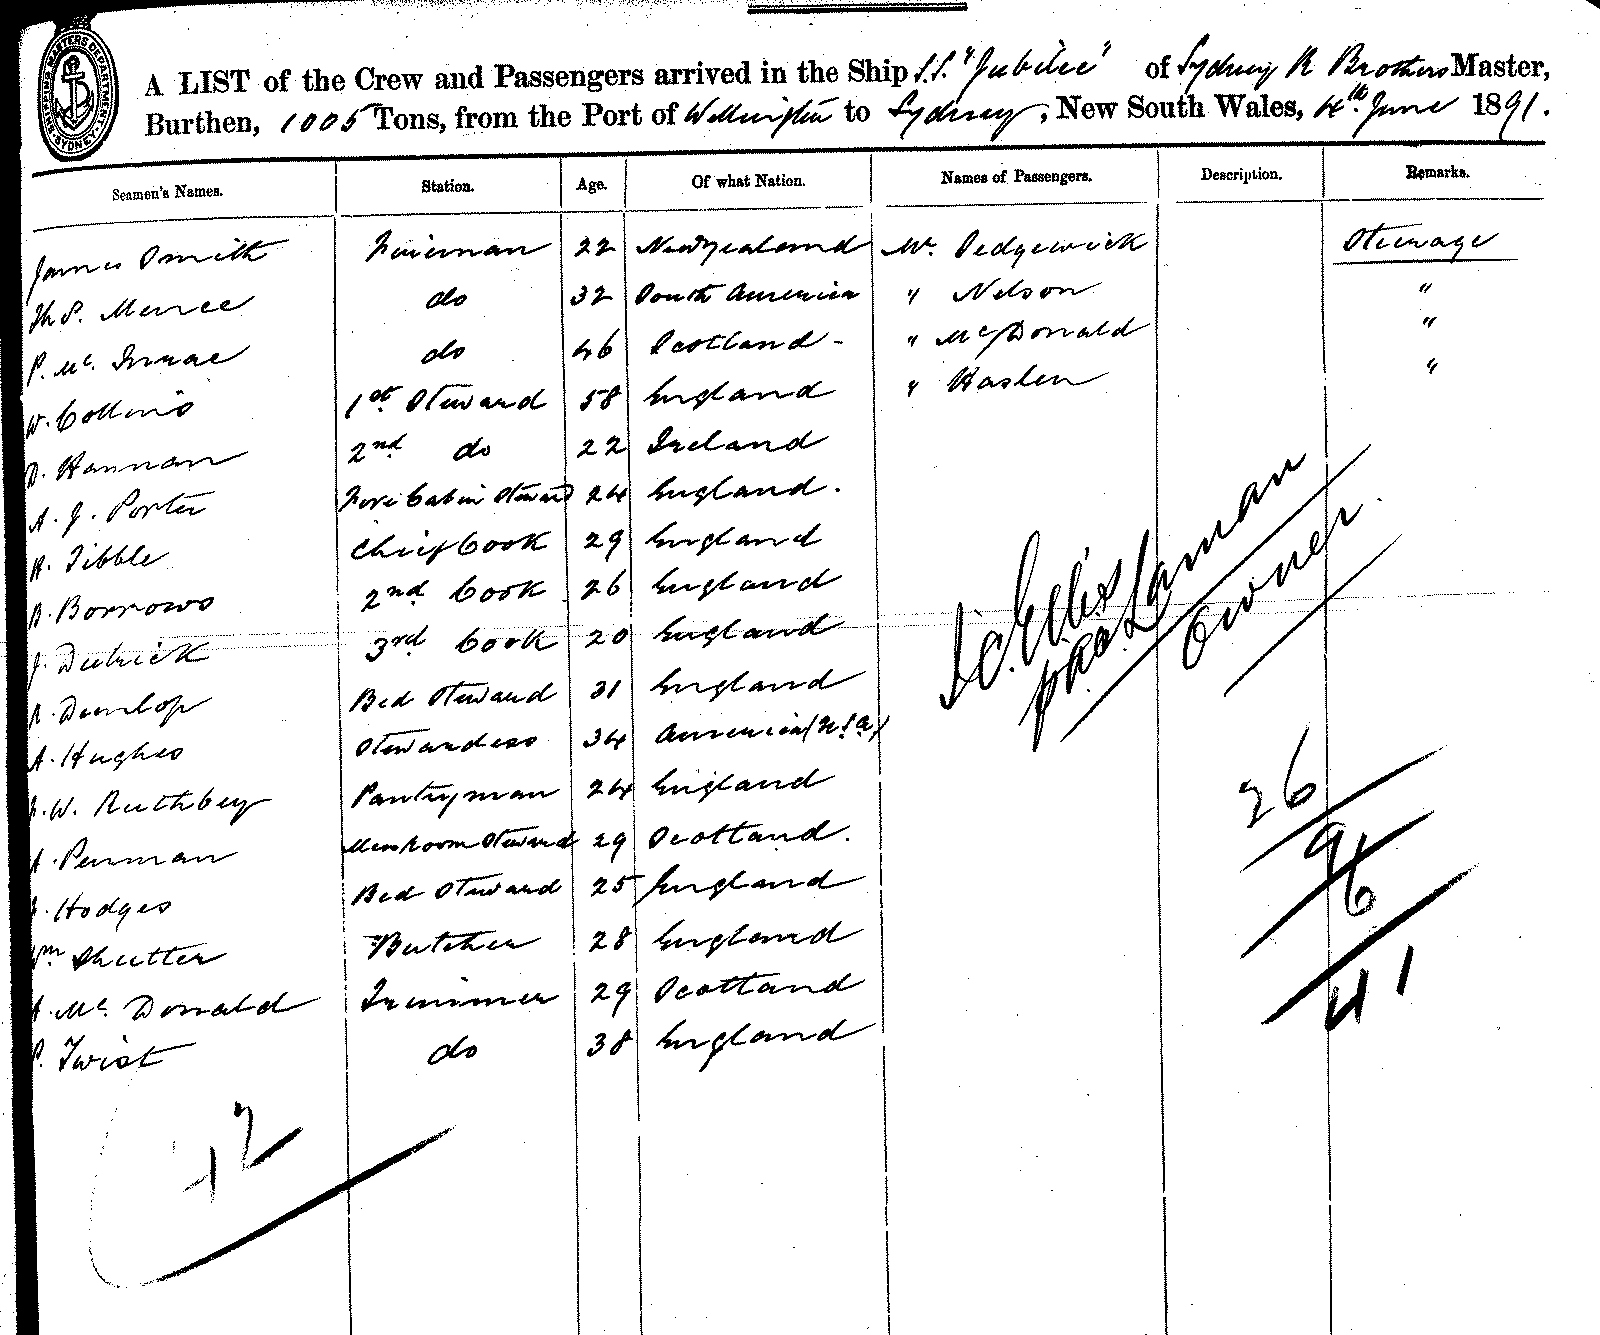 A LIST of the Crew and Passengers arrived in the Ship S.S. "Jubilee" of Sydney R Brothers Master,
Burthen, 1005 Tons, from the Port of Wellington to Sydney, New South Wales, 4th June 1891.
Seamen's Names. Station. Age. Of what Nation. Names of Passengers. Description. Remarks.
James Smith Fireman 22 New Zealand Mr. Sedgewick Steerage
do 32 South America " Nelson "
P. Mc. do 46 Scotland - " McDonald "
W. Collins 1st Steward 58 England " Haslen "
D. Hannan 2nd do 22 Ireland
A. J. Porter Fore Cabin Steward 24 England.
H. Tibble Chief Cook 29 England
B. Borrows 2nd Cook 26 England
J. Detrick 3rd Cook 20 England
Dunlop Bed Steward 31 England
A. Hughes Stewardess 34 America (U.S.A)
W. Ruthbey Pantryman 24 England
Penman Messroom Steward 29 Scotland.
Hodges Bed Steward 25 England
Wm Shutter Butcher 28 England
A. Mc. Donald Trimmer 29 Scotland
P. Twist do 38 England
Ellis
owner.
26
9
6
41
42